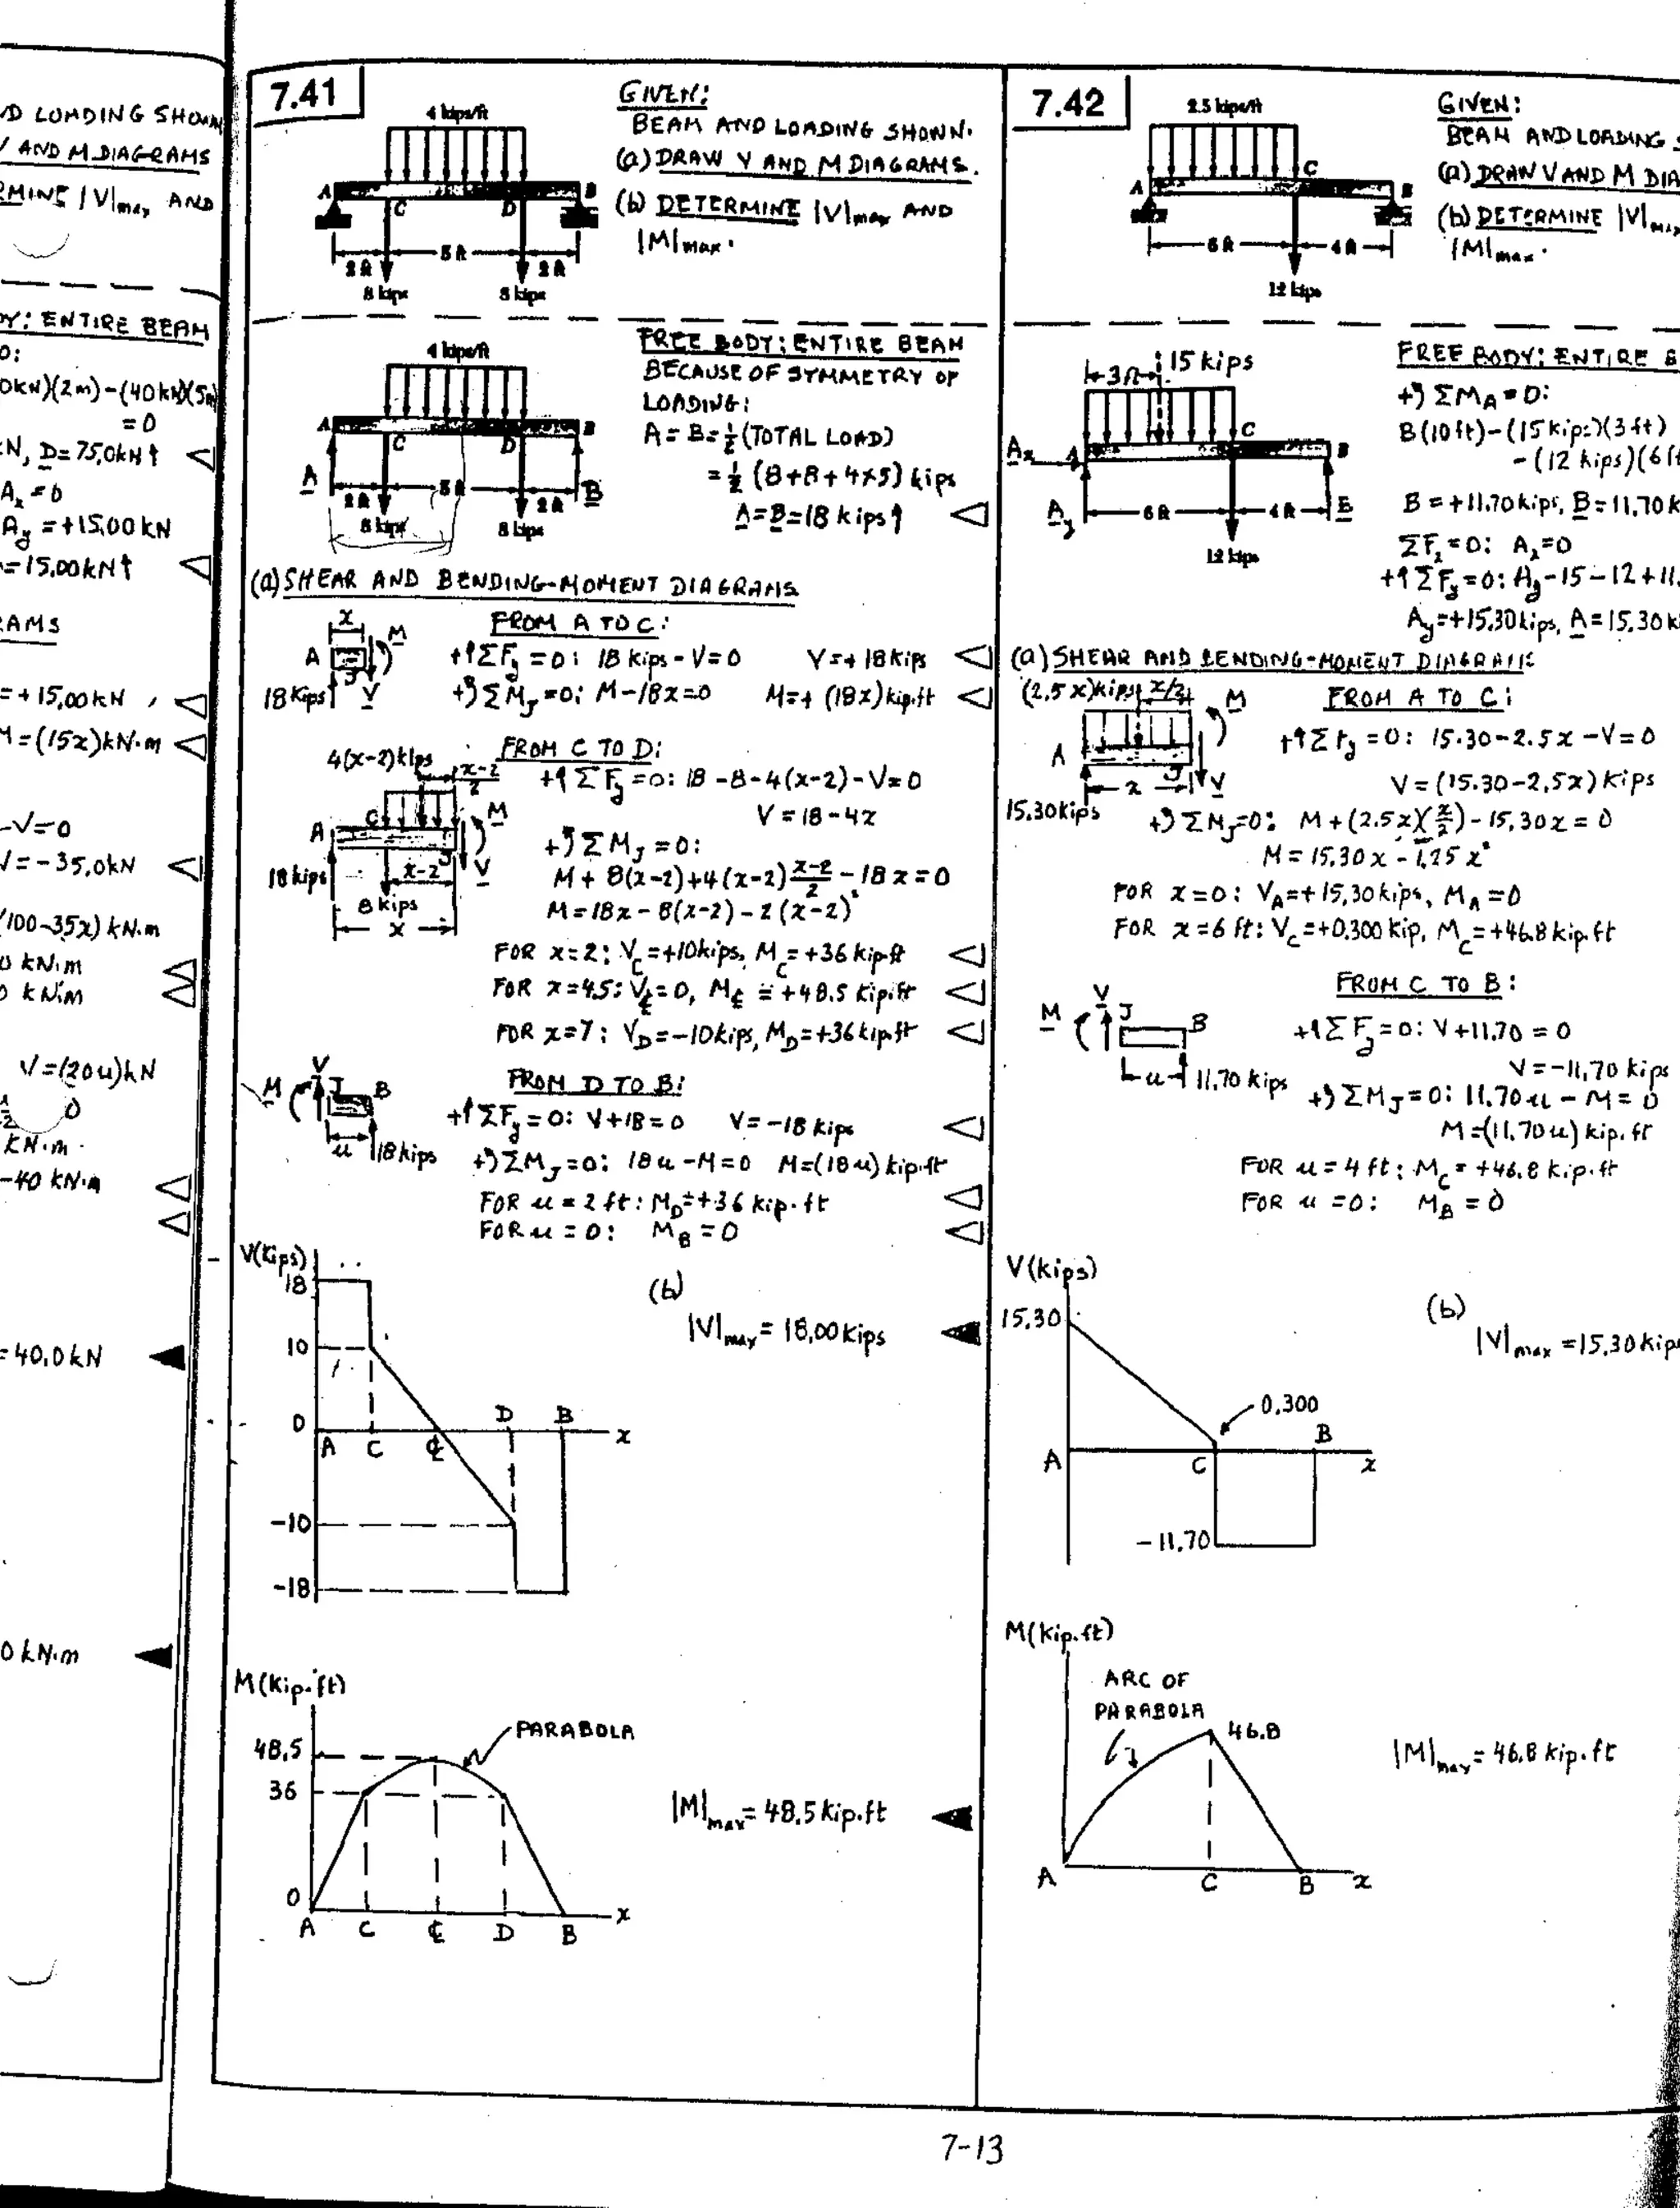 D LOADING SHOWN
V AND M DIAGRAMS
RMINE |V|max AND
DY: ENTIRE BEAM
0:
0kN)(2m)-(40kN)(5m)
=0
N, D=75.0kN↑
Ax=0
Ay=+15.00kN
=15.00kN↑
RAMS
=+15.00kN
M=(15x)kN·m
-V=0
V=-35.0kN
(100-35x)kN·m
0 kN·m
0 kN·m
V=(20u)kN
0
kN·m
-40 kN·m
=40.0kN
0 kN·m
7.41
4 kips/ft
A
C
D
B
2 ft
5 ft
2 ft
8 kips
8 kips
GIVEN:
BEAM AND LOADING SHOWN.
(a) DRAW V AND M DIAGRAMS.
(b) DETERMINE |V|max AND
|M|max.
4 kips/ft
A
C
D
B
A
2 ft
5 ft
2 ft
B
8 kips
8 kips
FREE BODY: ENTIRE BEAM
BECAUSE OF SYMMETRY OF
LOADING:
A=B=½(TOTAL LOAD)
=½(8+8+4×5) kips
A=B=18 kips↑
(a) SHEAR AND BENDING-MOMENT DIAGRAMS
x
M
A
J
18 kips
V
FROM A TO C:
+↑ΣFy=0: 18 kips-V=0 V=+18 kips
+↺ΣMJ=0: M-18x=0 M=+(18x)kip·ft
4(x-2)kips
x-2/2
C
M
A
J
V
18 kips
x-2
8 kips
x
FROM C TO D:
+↑ΣFy=0: 18-8-4(x-2)-V=0
V=18-4x
+↺ΣMJ=0:
M+8(x-2)+4(x-2)x-2/2-18x=0
M=18x-8(x-2)-2(x-2)²
FOR x=2: VC=+10kips, MC=+36 kip·ft
FOR x=4.5: V℄=0, M℄=+48.5 kip·ft
FOR x=7: VD=-10kips, MD=+36kip·ft
M
V
J
B
u
18kips
FROM D TO B:
+↑ΣFy=0: V+18=0 V=-18 kips
+↺ΣMJ=0: 18u-M=0 M=(18u)kip·ft
FOR u=2 ft: MD=+36 kip·ft
FOR u=0: MB=0
V(kips)
18
10
0
-10
-18
A
C
℄
D
B
x
(b)
|V|max=18.00kips
M(kip·ft)
48.5
36
0
PARABOLA
A
C
℄
D
B
x
|M|max=48.5kip·ft
7.42
2.5 kips/ft
A
C
B
6 ft
4 ft
12 kips
GIVEN:
BEAM AND LOADING S
(a) DRAW V AND M DIA
(b) DETERMINE |V|max
|M|max.
3ft
15 kips
Ax
A
C
B
Ay
6 ft
4 ft
B
12 kips
FREE BODY: ENTIRE B
+↺ΣMA=0:
B(10ft)-(15kips)(3ft)
-(12 kips)(6ft
B=+11.70kips, B=11.70k
ΣFx=0: Ax=0
+↑ΣFy=0: Ay-15-12+11.
Ay=+15.30kips, A=15.30k
(a) SHEAR AND BENDING-MOMENT DIAGRAMS
(2.5x)kips
x/2
M
A
J
x
V
15.30kips
FROM A TO C:
+↑ΣFy=0: 15.30-2.5x-V=0
V=(15.30-2.5x)kips
+↺ΣMJ=0: M+(2.5x)(x/2)-15.30x=0
M=15.30x-1.25x²
FOR x=0: VA=+15.30kips, MA=0
FOR x=6 ft: VC=+0.300 kip, MC=+46.8 kip·ft
M
V
J
B
u
11.70 kips
FROM C TO B:
+↑ΣFy=0: V+11.70=0
V=-11.70 kips
+↺ΣMJ=0: 11.70u-M=0
M=(11.70u)kip·ft
FOR u=4 ft: MC=+46.8 kip·ft
FOR u=0: MB=0
V(kips)
15.30
0.300
A
C
B
x
-11.70
(b)
|V|max=15.30kips
M(kip·ft)
ARC OF
PARABOLA
46.8
A
C
B
x
|M|max=46.8 kip·ft
7-13